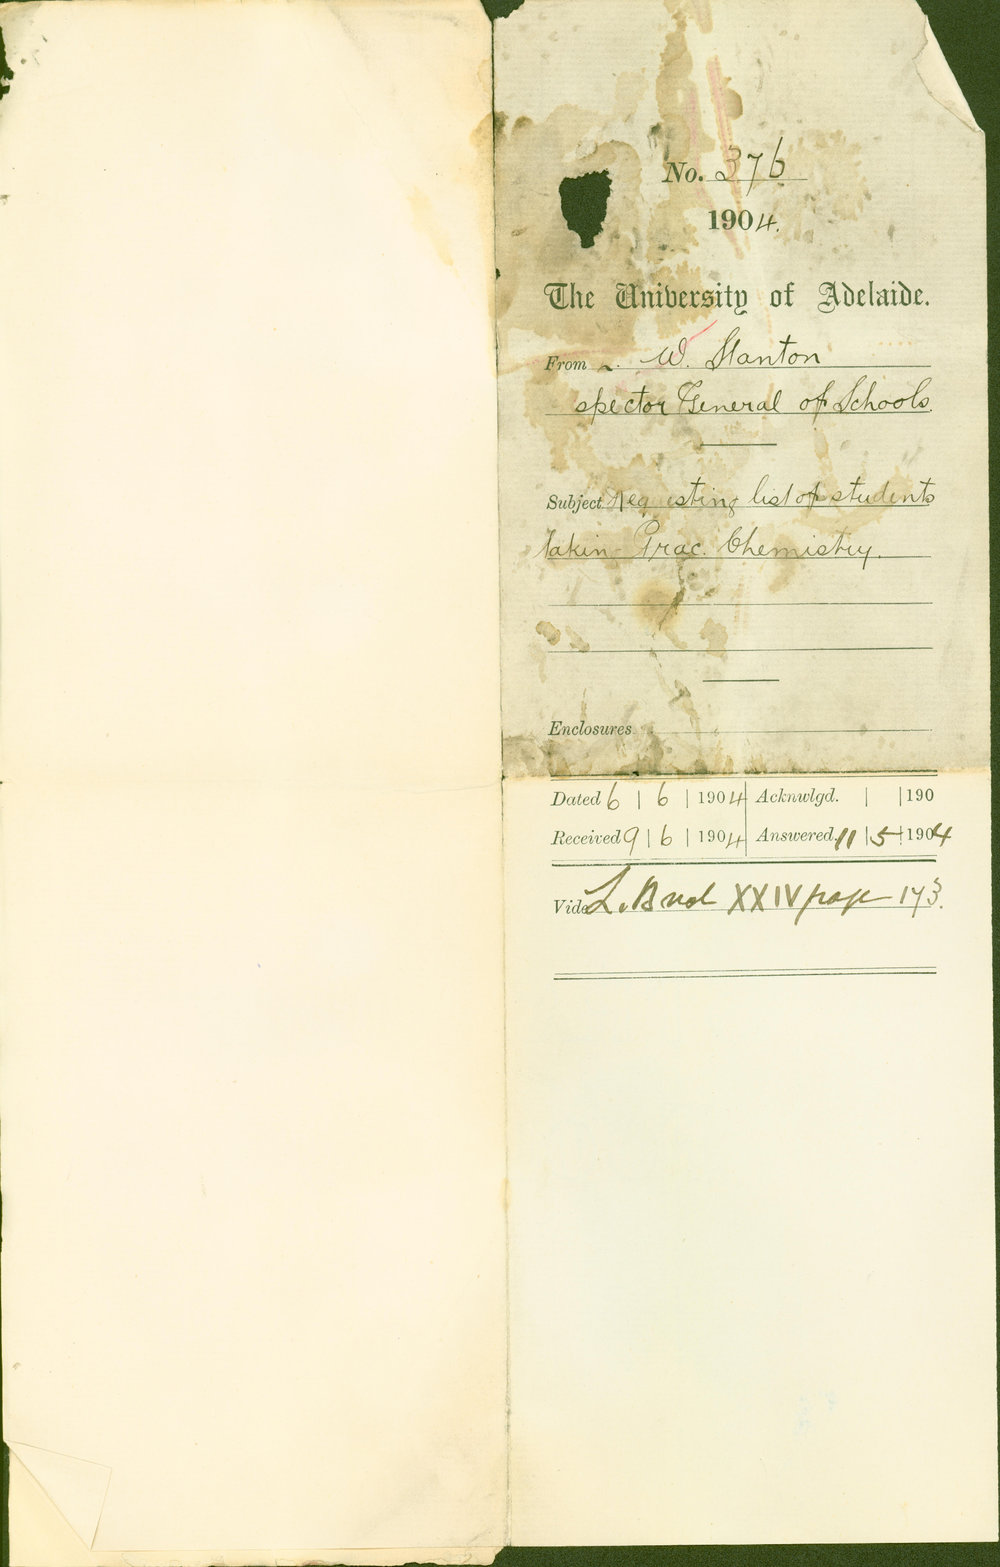 No. 376
1904.
The University of Adelaide.
From W. Stanton
spector General of Schools.
Subject Requesting list of students
takin Prac. Chemistry.
Enclosures
Dated 6 | 6 | 1904 Acknwlgd. | | 190
Received 9 | 6 | 1904 Answered 11 | 5 | 1904
Vide L. B vol XXIV page 173.